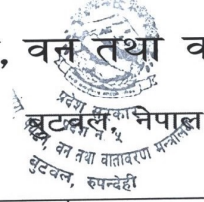 , वन तथा व
बुटवल, नेपाल
प्रदेश सरकार
, वन तथा वातावरण मन्त्रालय
बुटवल, रुपन्देही